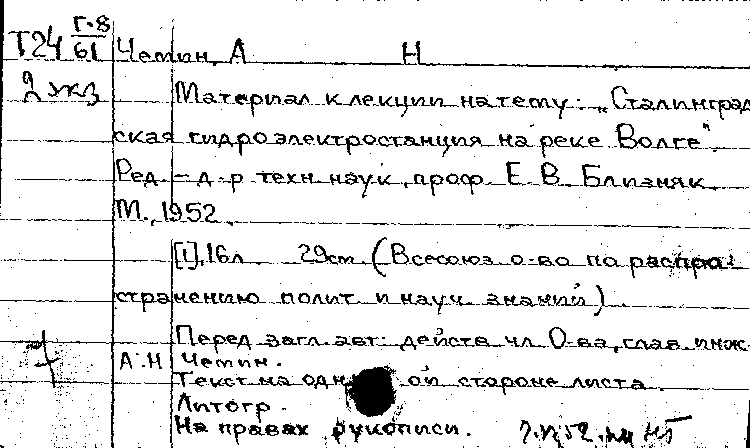 Т24 Г-8/61 Чемин, А Н
2 экз Материал к лекции на тему: „Сталинград
ская гидроэлектростанция на реке Волге".
Ред. - д-р техн. наук, проф. Е. В. Близняк.
М., 1952.
[1], 16 л. 29 см (Всесоюз. о-во по распро-
странению полит. и науч. знаний).
Перед загл. авт: действ. чл. О-ва, глав. инж.
А. Н. Чемин.
Текст на одн ой стороне листа.
Литогр.
На правах рукописи.